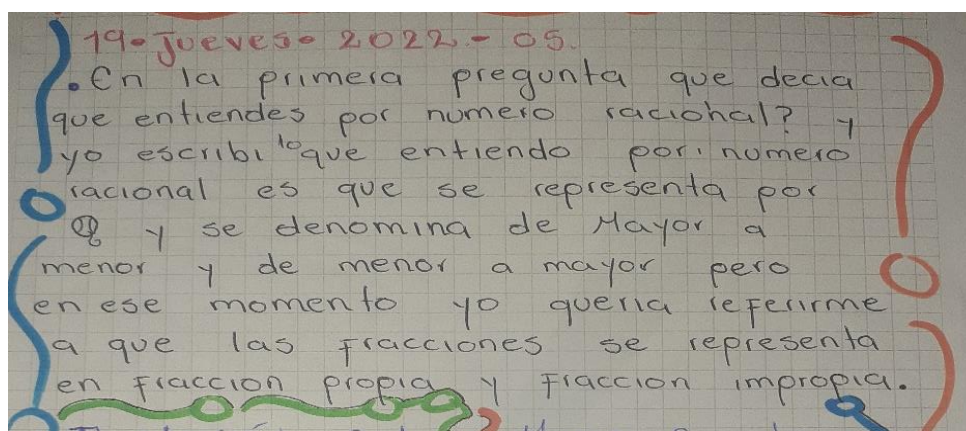 19. Jueves. 2022.- 05.
. En la primera pregunta que decia
que entiendes por numero racional? y
yo escribi lo que entiendo por numero
racional es que se representa por
Q y se denomina de Mayor a
menor y de menor a mayor pero
en ese momento yo queria referirme
a que las Fracciones se representa
en Fraccion propia y Fraccion impropia.